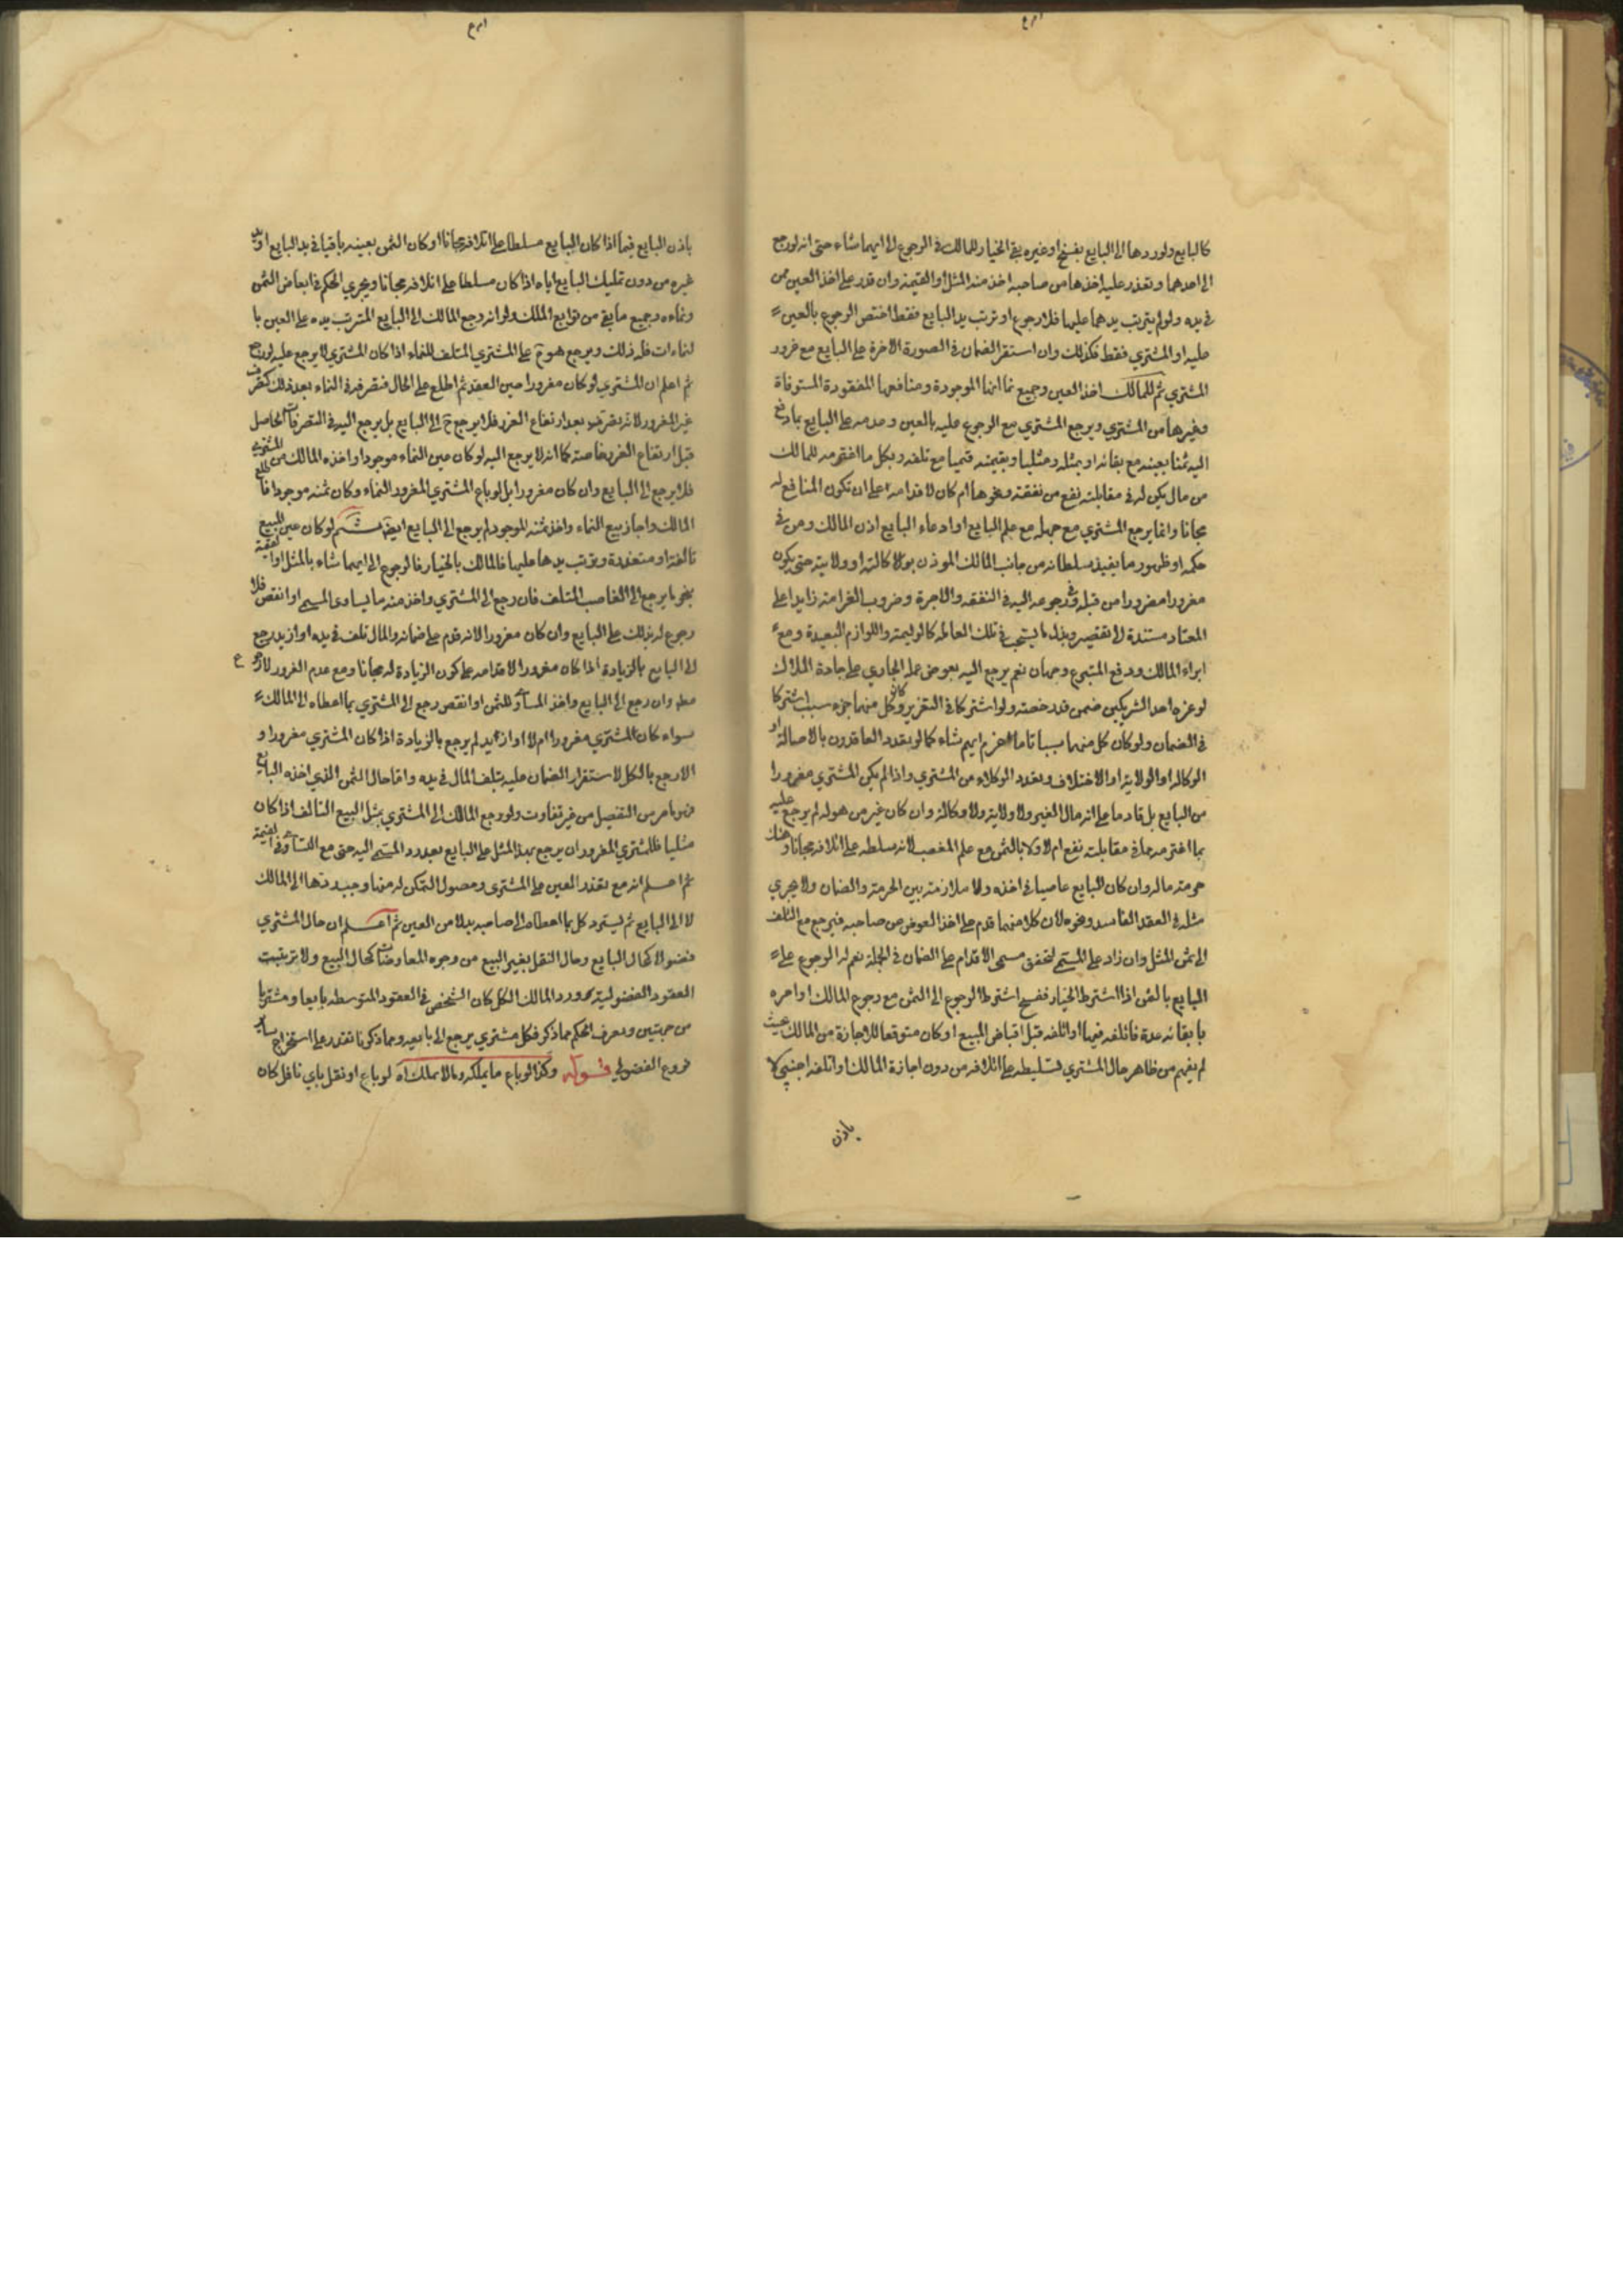 كالبايع ولو ردها الى البايع بفسخ او غيره بقى الخيار للمالك في الرجوع الى ايهما شاء حتى انه لو رجع
الى احدهما وتعذر عليه اخذها من صاحبه اخذ منه المثل او القيمة وان قدر على اخذ العين ممن
في يده ولو لم يترتب يدهما عليها فلا رجوع او ترتب يد البايع فقط اختص الرجوع بالعين
عليه او المشتري فقط فكذلك وان استقر الضمان في الصورة الاخرة على البايع مع غرور
المشتري ثم للمالك اخذ العين وجميع نمائها الموجودة ومنافعها المفقودة المستوفاة
وغيرها من المشتري ويرجع المشتري مع الرجوع عليه بالعين وعدمه على البايع بما دفع
اليه ثمنا بعينه مع بقائه او بمثله مثليا وبقيمته قيميا مع تلفه وبكل ما اغترمه للمالك
من مال يكن له في مقابلته نفع من نفقة ونحوها ام كان لاقدامه على ان تكون المنافع له
مجانا وانما يرجع المشتري مع جهله مع علم البايع او ادعاء البايع اذن المالك ومن في
حكمه او ظهور ما يفيد سلطانه من جانب المالك الموذن بولا كالته او ولايته حتى يكون
مغرورا من قبله وفي رجوعه اليه في النفقة والاجرة وضروب الغرامة زايدا على
المعتاد مستندة لا تقصير وبذل ما يستحب في تلك العاملة كالوليمة واللوازم البعيدة ومع
ابراء المالك ودفع المتبرع وجهان نعم يرجع اليه بعوض عمله الجاري على جادة الملاك
لو غره احد الشريكين ضمن قدر حصته ولو اشتركا في التغرير وكان كل منهما جزء سبب اشتركا
في الضمان ولو كان كل منهما سببا تاما اغرم ايهم شاء كما لو تعدد العاقدون بالاصالة او
الوكالة او الولاية او الاختلاف وتعدد الوكلاء من المشتري واذا لم يكن المشتري مغرورا
من البايع بل قادما على انه مال الغير ولا ولاية ولا وكالة وان كان غير من هو له لم يرجع عليه
بما اغترمه مما في مقابلته نفع ام لا ولا بالثمن مع علم المغصب لانه سلطه على اتلافه مجانا وهتك
حرمة ماله وان كان البايع عاصيا في اخذه ولا ملازمة بين الحرمة والضمان ولا يجري
مثله في العقد الفاسد ونحوه لان كلا منهما قدم على اخذ العوض من صاحبه فيرجع مع التلف
الى ثمن المثل وان زاد على المسمى لتحقق مسمى الاقدام على الضمان في الجملة نعم له الرجوع على
البايع بالثمن اذا اشترط الخيار ففسخ اشترط الرجوع الى الثمن مع رجوع المالك او امره
بابقائه عدة فاتلفه فيها او اتلفه قبل اقباض المبيع او كان متوقعا للاجازة من المالك بحيث
لم يفهم من ظاهر حال المشتري تسليطه على اتلافه من دون اجازة المالك او اتلفه اجنبي لا
باذن
باذن البايع فيما اذا كان البايع مسلطا على اتلافه مجانا او كان الثمن بعينه باقيا في يد البايع او يد
غيره من دون تمليك البايع اياه اذا كان مسلطا على اتلافه مجانا ويجري الحكم في ابعاض الثمن
ونماءه وجميع ما بقي من توابع الملك ولو انه رجع المالك الى البايع المترتب يده على العين با
لنماءات فله ذلك ويرجع هو ح على المشتري المتلف للنماء اذا كان المشتري لا يرجع عليه لو رجع
ثم اعلم ان المشتري لو كان مغرورا حين العقد ثم اطلع على الحال فتصرفه في النماء بعد ذلك كتصرف
غير المغرور لانه تصرف بعد ارتفاع الغرور فلا يرجع ح الى البايع بل يرجع اليه في التصرفات الحاصل
قبل ارتفاع الغرور خاصة كما انه لا يرجع اليه لو كان عين النماء موجودا واخذه المالك من المشتري
فلا يرجع الى البايع وان كان مغرورا بل لو باع المشتري المغرور النماء وكان ثمنه موجودا فاطلع
المالك واجاز بيع النماء واخذ ثمنه الموجود لم يرجع الى البايع ايضا ثم لو كان عين المبيع
تالفة او متعذرة وترتب يدها عليها فالمالك بالخيار فالرجوع الى ايهما شاء بالمثل او القيمة
بنحو ما يرجع الى الغاصب المتلف فان رجع الى المشتري واخذ منه ما يساوى المسمى او انقص فلا
رجوع له بذلك على البايع وان كان مغرورا لانه قدم على ضمانه والمال تلف في يده او ازيد رجع
الى البايع بالزيادة اذا كان مغرورا لاقدامه على كون الزيادة له مجانا ومع عدم الغرور لا رجوع
مطلقا وان رجع الى البايع واخذ المساوي للثمن او انقص رجع الى المشتري بما اعطاه الى المالك
سواء كان المشتري مغرورا ام لا او ازيد لم يرجع بالزيادة اذا كان المشتري مغرورا و
الا رجع بالكل لاستقرار الضمان عليه بتلف المال في يده واما حال الثمن الذي اخذه البايع
فهو ما مر من التفصيل من غير تفاوت ولو رجع المالك الى المشتري بمثل المبيع التالف اذا كان
مثليا فللمشتري المغرور ان يرجع بهذا المثل على البايع بعد رد المسمى اليه حتى مع التساوي في القيمة
ثم اعلم انه مع تعذر العين على المشتري وحصول التمكن له منها وجب ردها الى المالك
لا الى البايع ثم يسترد كل ما اعطاه الى صاحبه بدلا من العين ثم اعلم ان حال المشتري
فضولا كحال البايع وحال النقل بغير البيع من وجوه المعاوضات كحال البيع ولو ترتبت
العقود الفضولية ورد المالك الكل كان الشخص في العقود المتوسطة بايعا ومشتريا
من جهتين ويعرف الحكم مما ذكر فكل مشتري يرجع الى بايعه ومما ذكرنا تقدر على استخراج ساير
فروع الفضولي قوله وكذا لو باع ما يملكه وما لا يملك اه لو باع او نقل باي ناقل كان